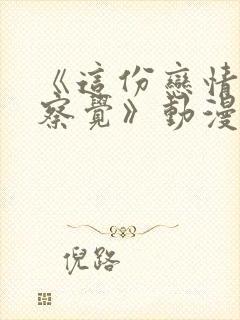 《這份戀情
察覺》動漫
倪路